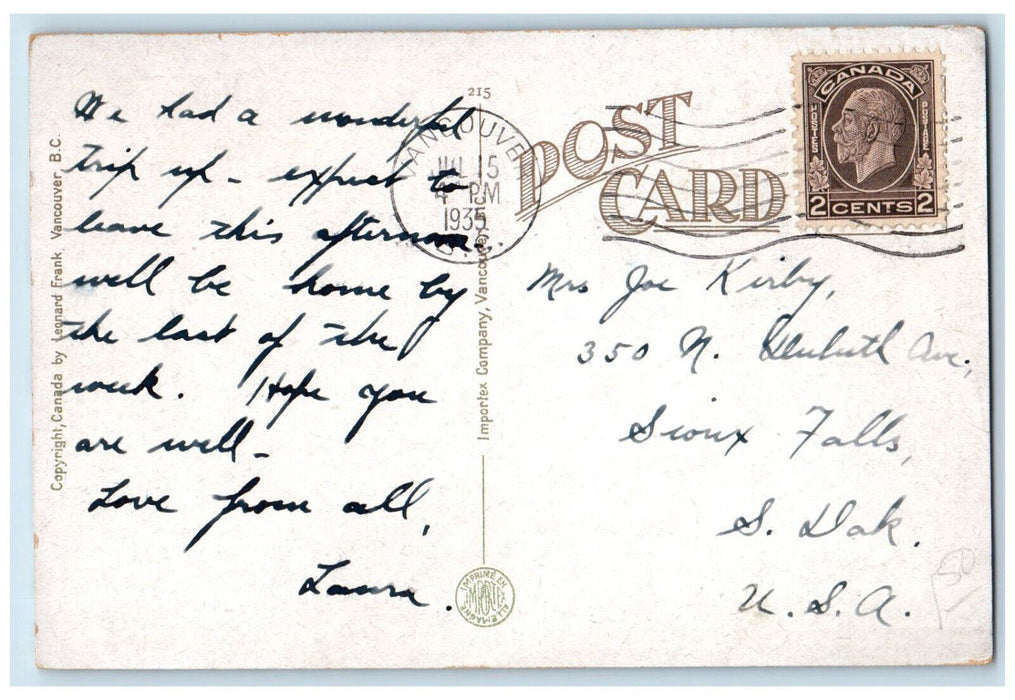 215
POST
CARD
CANADA
POSTES
POSTAGE
2 CENTS 2
VANCOUVER
JUL 15
4 PM
1935
B.C.
We had a wonderful
trip up - expect to
leave this afternoon.
will be home by
the last of the
week. Hope you
are well -
Love from all,
Laura.
Mrs Joe Kirby,
350 N. Duluth Ave.,
Sioux Falls,
S. Dak.
U.S.A.
Copyright, Canada by Leonard Frank. Vancouver, B.C.
Importex Company, Vancouver
IMPRIMÉ EN
ALLEMAGNE
50